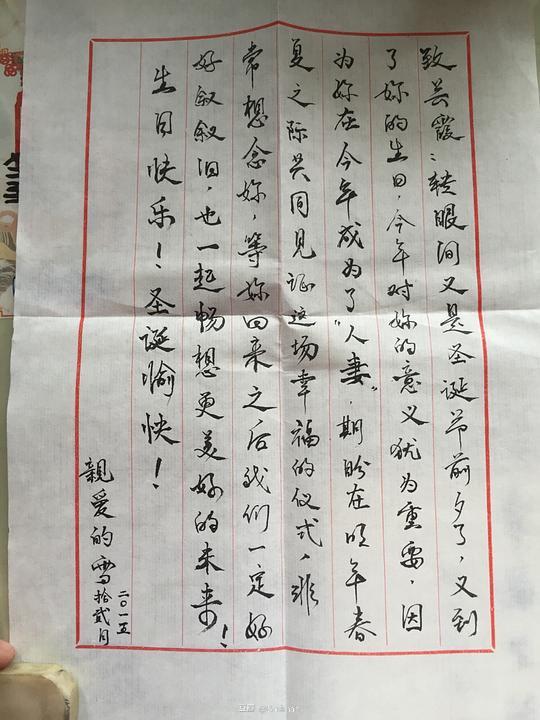 致芸霞：转眼间又是圣诞节前夕了，又到
了妳的生日，今年对妳的意义犹为重要，因
为妳在今年成为了“人妻”，期盼在明年春
夏之际共同见证这场幸福的仪式，非
常想念妳，等妳回来之后我们一定好
好叙叙旧，也一起畅想更美好的未来！
生日快乐！圣诞愉快！
親爱的雪
二〇一五
拾贰月